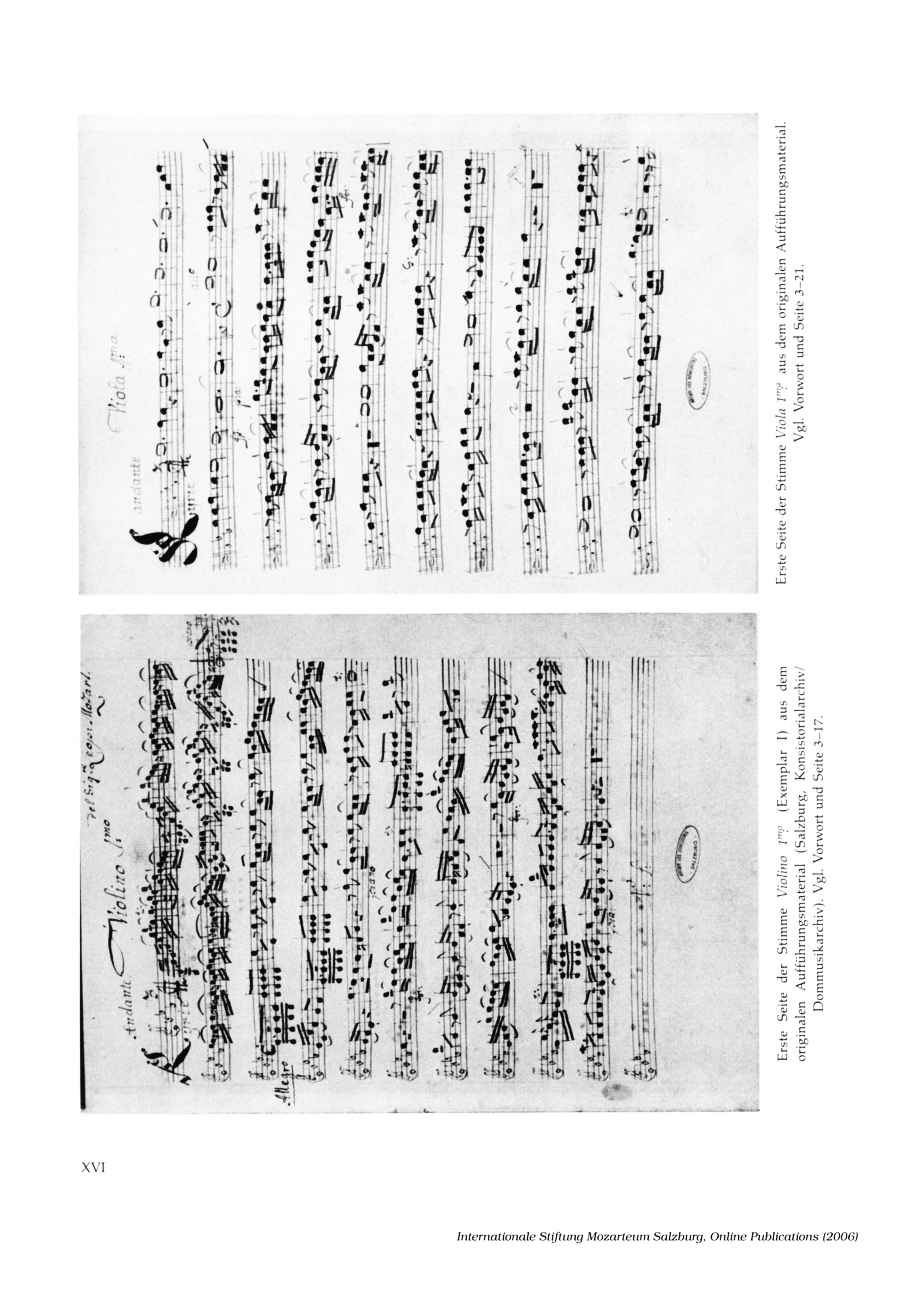 del Sigre Cajet: Mozart.
Violino Imo
Andante
piano
Allegro
piano
Erste Seite der Stimme Violino 1mo (Exemplar I) aus dem
originalen Aufführungsmaterial (Salzburg, Konsistorialarchiv/
Dommusikarchiv). Vgl. Vorwort und Seite 3–17.
Viola Ima
andante
pia
fp
pia
fp
Erste Seite der Stimme Viola 1mo aus dem originalen Aufführungsmaterial.
Vgl. Vorwort und Seite 3–21.
XVI
Internationale Stiftung Mozarteum Salzburg, Online Publications (2006)